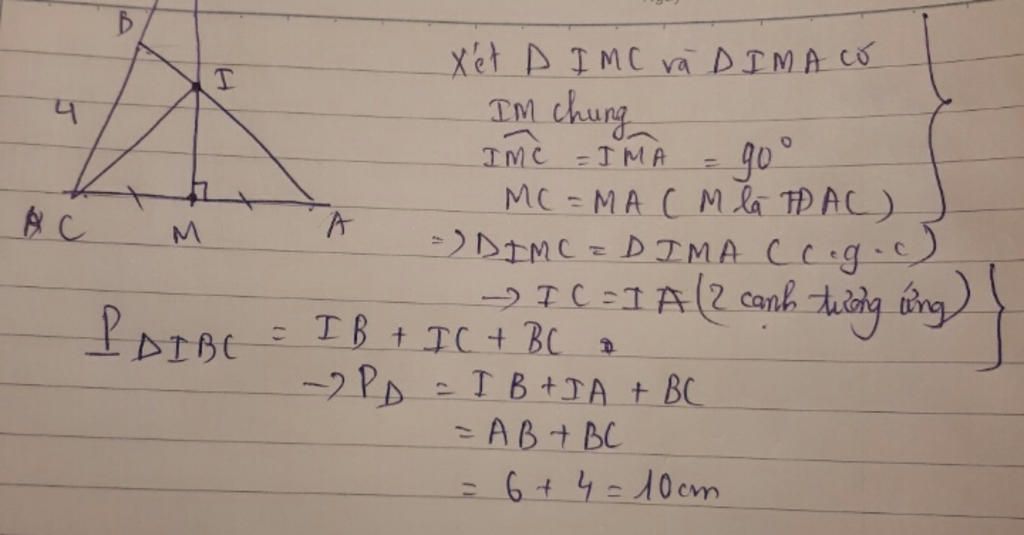 B
I
4
C
M
A
Xét Δ IMC và Δ IMA có
IM chung
IMC = IMA = 90°
MC = MA ( M là TĐ AC )
=> Δ IMC = Δ IMA ( c.g.c )
-> IC = IA ( 2 cạnh tương ứng )
P Δ IBC = IB + IC + BC
-> P Δ = IB + IA + BC
= AB + BC
= 6 + 4 = 10 cm